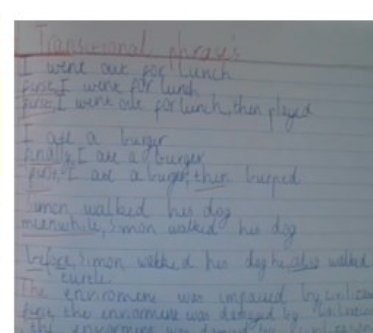 Transitional phrase's
I went out for lunch
first, I went for lunch
first, I went out for lunch, then played
I ate a burger
finally, I ate a burger
first, I ate a burger, then burped
Simon walked his dog
meanwhile, Simon walked his dog
before, Simon walked his dog he also walked
turtle
The enviroment was impaired by
first, the enviroment was damaged by
the enviroment was damaged by